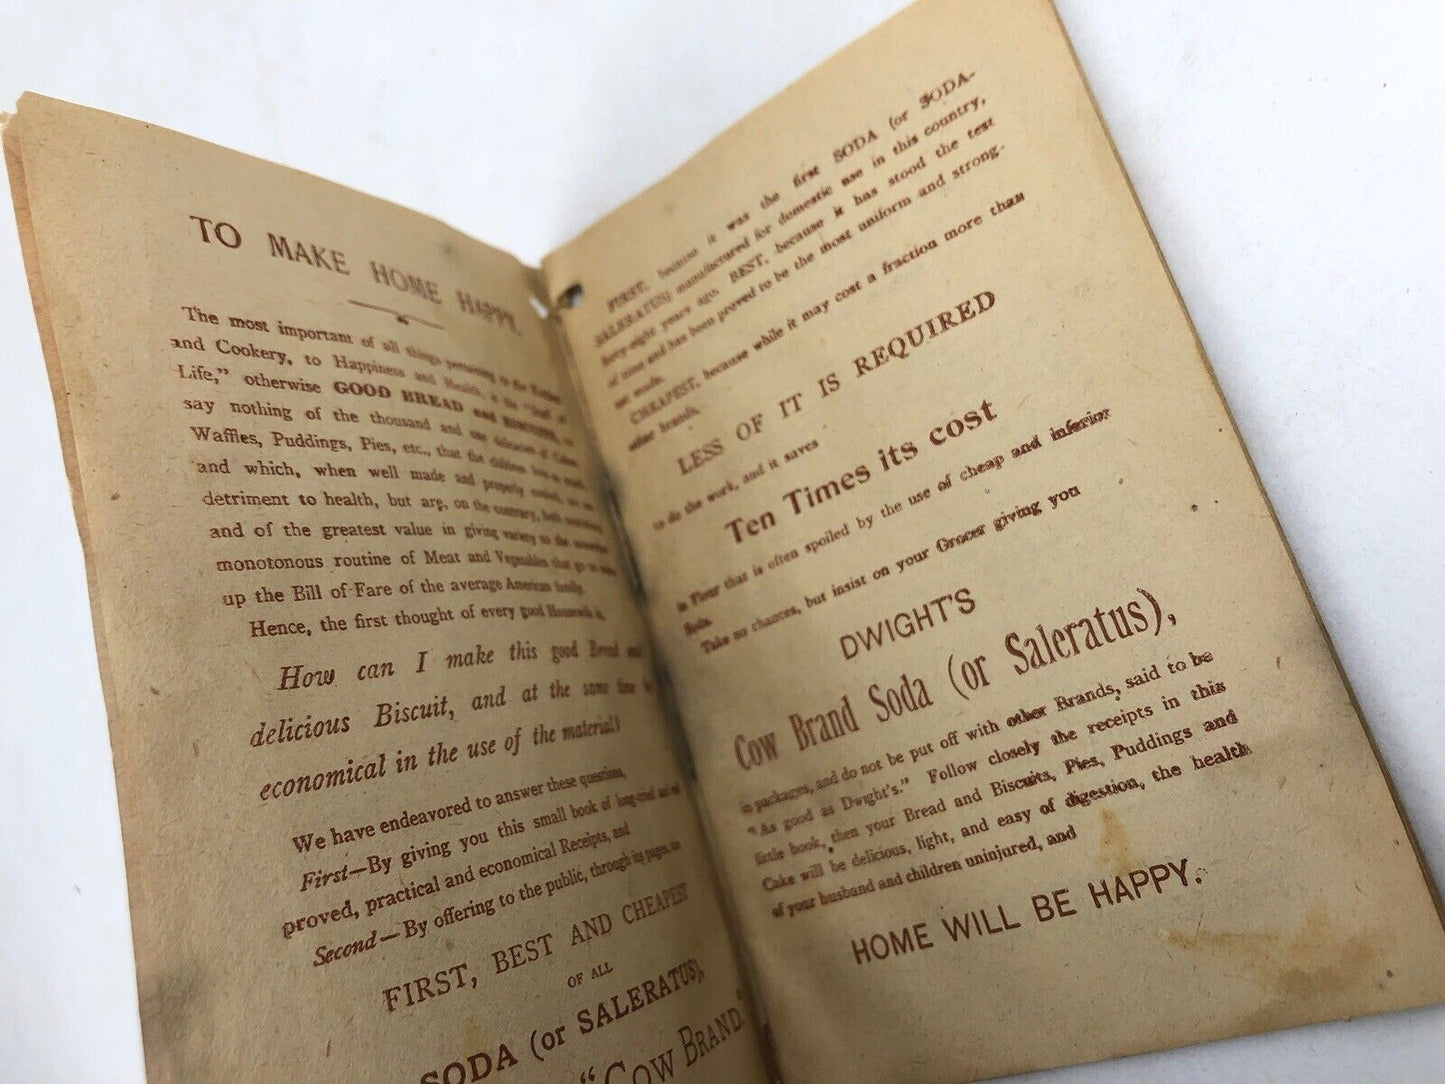 TO MAKE HOME HAPPY.
The most important of all things pertaining to the Kitchen
and Cookery, to Happiness and Health, is the "Staff of
Life," otherwise GOOD BREAD and BISCUITS, to
say nothing of the thousand and one delicacies of Cakes,
Waffles, Puddings, Pies, etc., that the children love so much,
and which, when well made and properly cooked, are no
detriment to health, but are, on the contrary, both
and of the greatest value in giving variety to the
monotonous routine of Meat and Vegetables that go to make
up the Bill of Fare of the average American family.
Hence, the first thought of every good Housewife is,
How can I make this good Bread and
delicious Biscuit, and at the same time be
economical in the use of the material?
We have endeavored to answer these questions,
First—By giving you this small book of long-tried and well
proved, practical and economical Receipts, and
Second—By offering to the public, through its pages, the
FIRST, BEST AND CHEAPEST
OF ALL
SODA (or SALERATUS),
"COW BRAND."
FIRST, because it was the first SODA (or SODA-
SALERATUS) manufactured for domestic use in this country,
forty-eight years ago. BEST, because it has stood the test
of time and has been proved to be the most uniform and strong-
est made.
CHEAPEST, because while it may cost a fraction more than
other brands.
LESS OF IT IS REQUIRED
to do the work, and it saves
Ten Times its cost
in Flour that is often spoiled by the use of cheap and inferior
Soda.
Take no chances, but insist on your Grocer giving you
DWIGHT'S
Cow Brand Soda (or Saleratus),
in packages, and do not be put off with other Brands, said to be
"As good as Dwight's." Follow closely the receipts in this
little book, then your Bread and Biscuits, Pies, Puddings and
Cake will be delicious, light, and easy of digestion, the health
of your husband and children uninjured, and
HOME WILL BE HAPPY.